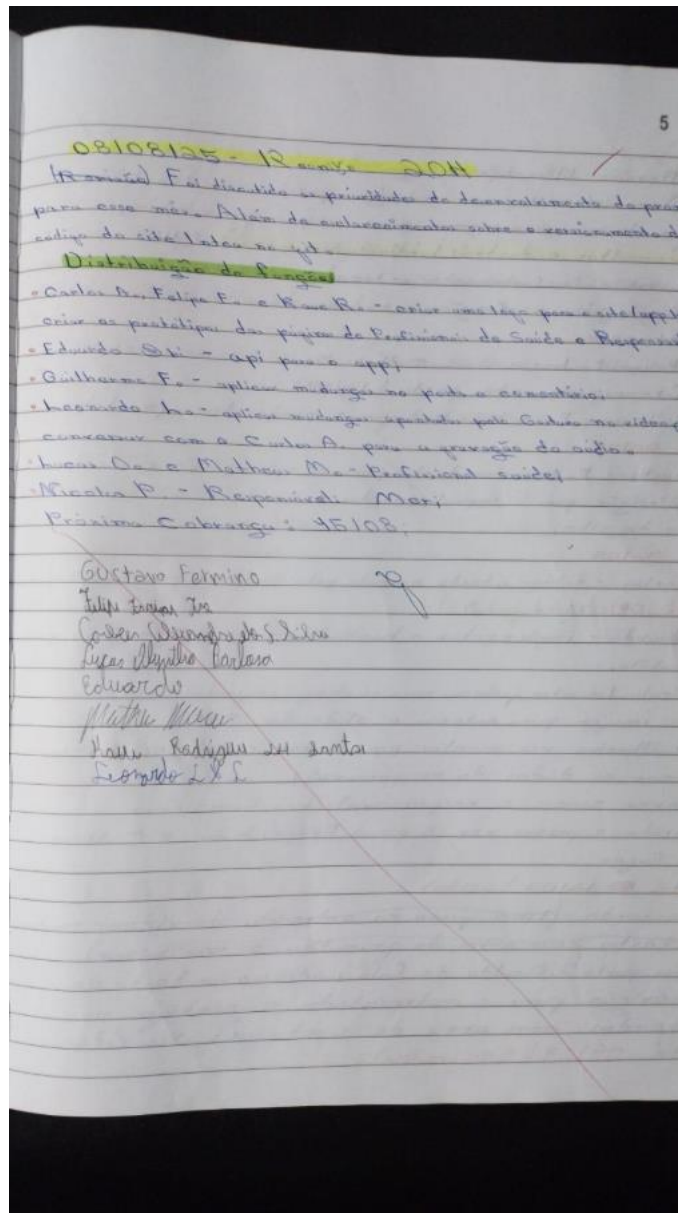 5
08/08/25 - Reunião 2DH
(Reunião) Foi discutido as prioridades do desenvolvimento do
para esse mês. Além de esclarecimentos sobre o versionamento d
código do site no git.
Distribuição de funções
• Carlos A., Felipe F. e R. - criar uma logo para o site/app
criar os protótipos das páginas do Profissionais da Saúde e Responsáv
• Eduardo - api para o app;
• Guilherme F. - aplicar mudanças no post e comentário;
• Leonardo L. - aplicar mudanças apontadas pelo Gustavo no vídeo e
conversar com o Carlos A. para a gravação do áudio.
• Lucas D. e Matheus M. - Profissional saúde;
• Nicolas P. - Responsável.
Próxima Cobrança: 15/08.
Gustavo Fermino
Felipe
Carlos Alexandre dos S. Silva
Lucas Barbosa
Eduardo
Matheus
Rodrigues dos Santos
Leonardo L